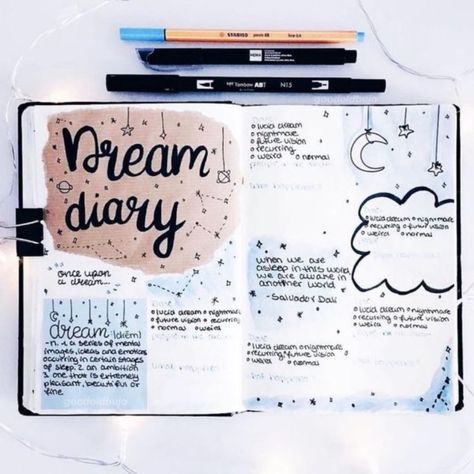 STABILO point 88 fine 0,4
Tombow ABT N15
goodoldbujo
Dream
diary
once upon
a dream...
dream |driēm|
-n. 1. a series of mental
images, ideas and emotions
occurring in certain stages
of sleep 2. an ambition
3. one that is extremely
pleasant, beautiful or
fine
goodoldbujo
Date:
lucid dream nightmare
future vision recurring
normal weird
people in the
Date:
lucid dream
nightmare
future vision
recurring
weird normal
people in the
what happened?
when we are
asleep in this world,
we are awake in
another world
-Salvador Dali
Date:
lucid dream nightmare
recurring future vision
weird normal
what happened?
lucid dream nightmare
recurring future vision
weird normal
lucid dream nightmare
recurring future vision
weird normal
what happened?